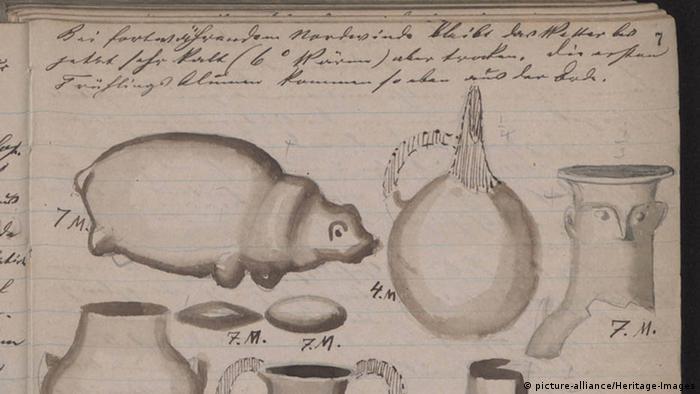 Bei fortwährendem Nordwinde bleibt das Wetter bis 7
jetzt sehr kalt (6° Wärme) aber trocken. Die ersten
Frühlingsblumen kommen so eben aus der Erde.
7 M.
4. M
7. M.
7. M.
7. M.
© picture-alliance/Heritage-Images